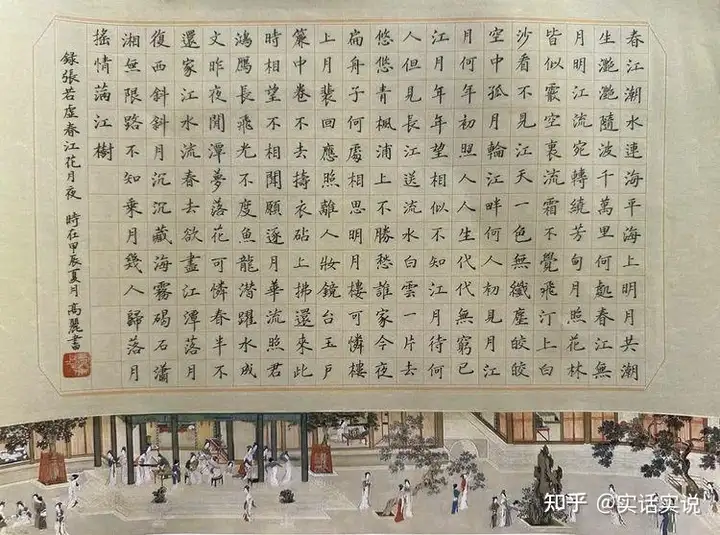 春江潮水連海平海上明月共潮
生灧灧隨波千萬里何處春江無
月明江流宛轉繞芳甸月照花林
皆似霰空裏流霜不覺飛汀上白
沙看不見江天一色無纖塵皎皎
空中孤月輪江畔何人初見月江
月何年初照人人生代代無窮已
江月年年望相似不知江月待何
人但見長江送流水白雲一片去
悠悠青楓浦上不勝愁誰家今夜
扁舟子何處相思明月樓可憐樓
上月裴回應照離人妝鏡台玉戶
簾中卷不去擣衣砧上拂還來此
時相望不相聞願逐月華流照君
鴻鴈長飛光不度魚龍潛躍水成
文昨夜閒潭夢落花可憐春半不
還家江水流春去欲盡江潭落月
復西斜斜月沉沉藏海霧碣石瀟
湘無限路不知乘月幾人歸落月
搖情滿江樹
錄張若虛春江花月夜 時在甲辰夏月 高麗書
知乎 @实话实说